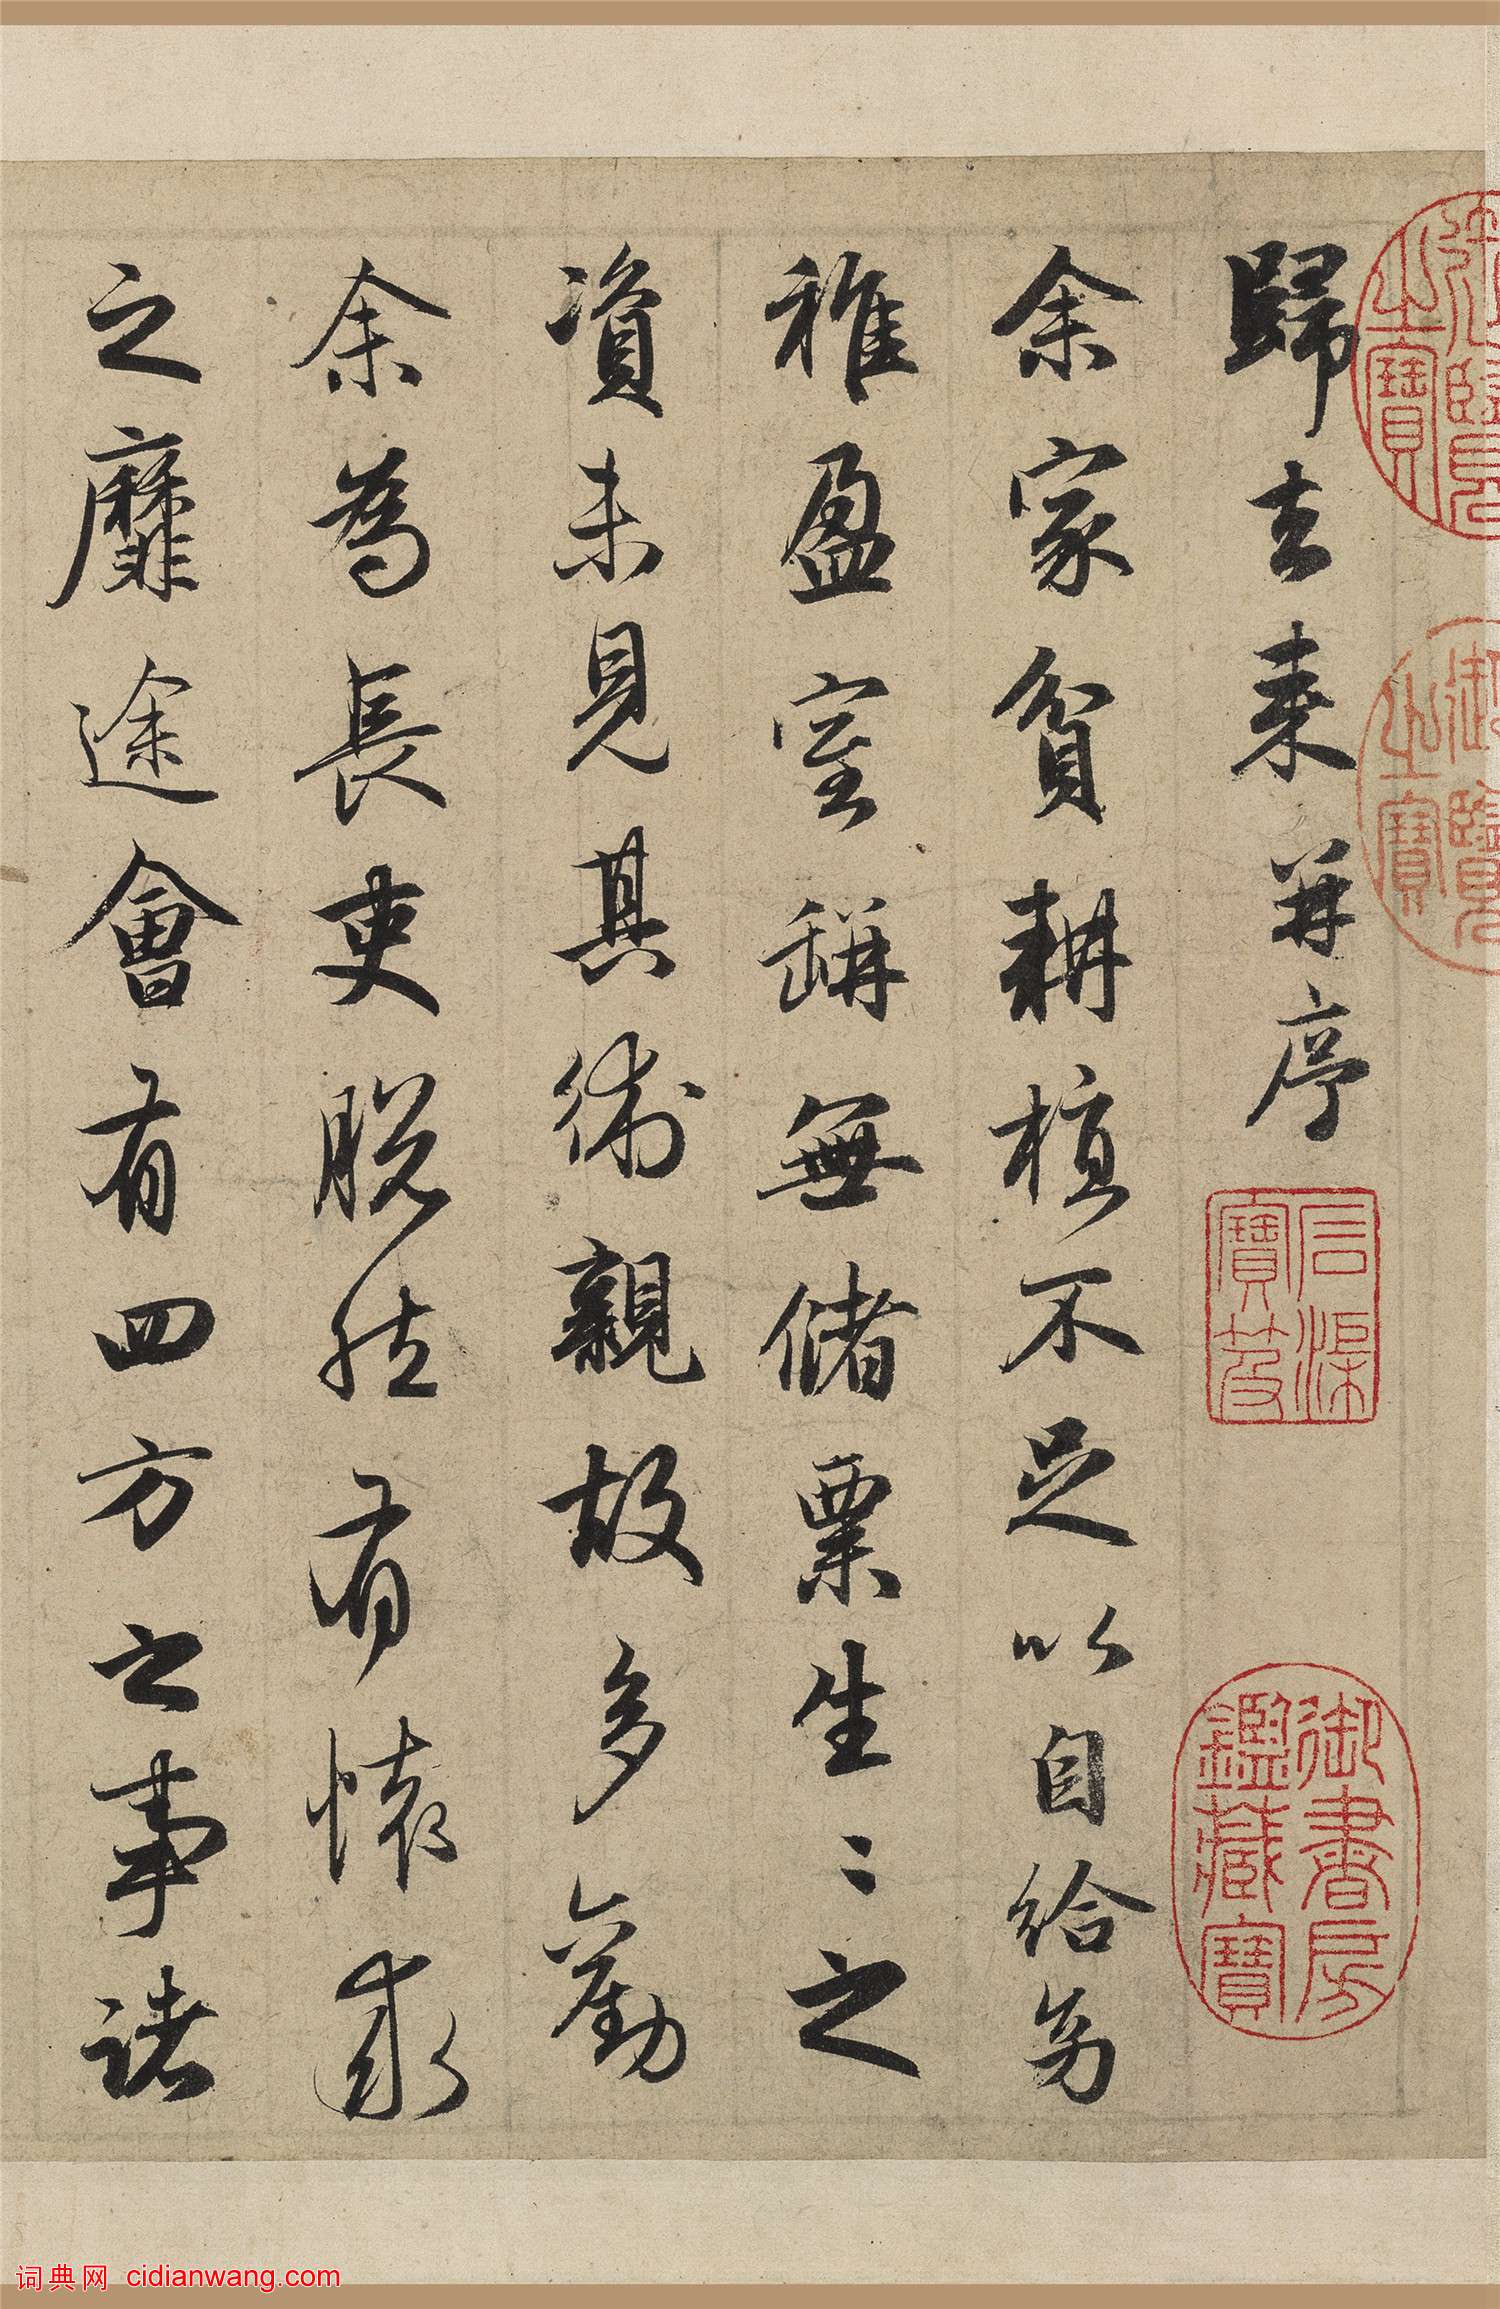 歸去来并序
余家貧耕植不足以自給幼
稚盈室缾無儲粟生〻之
資未見其術親故多勸
余為長吏脫然有懷求
之靡途會有四方之事諸
御覽之寶
石渠寶笈
御書房鑑藏寶
词典网 cidianwang.com